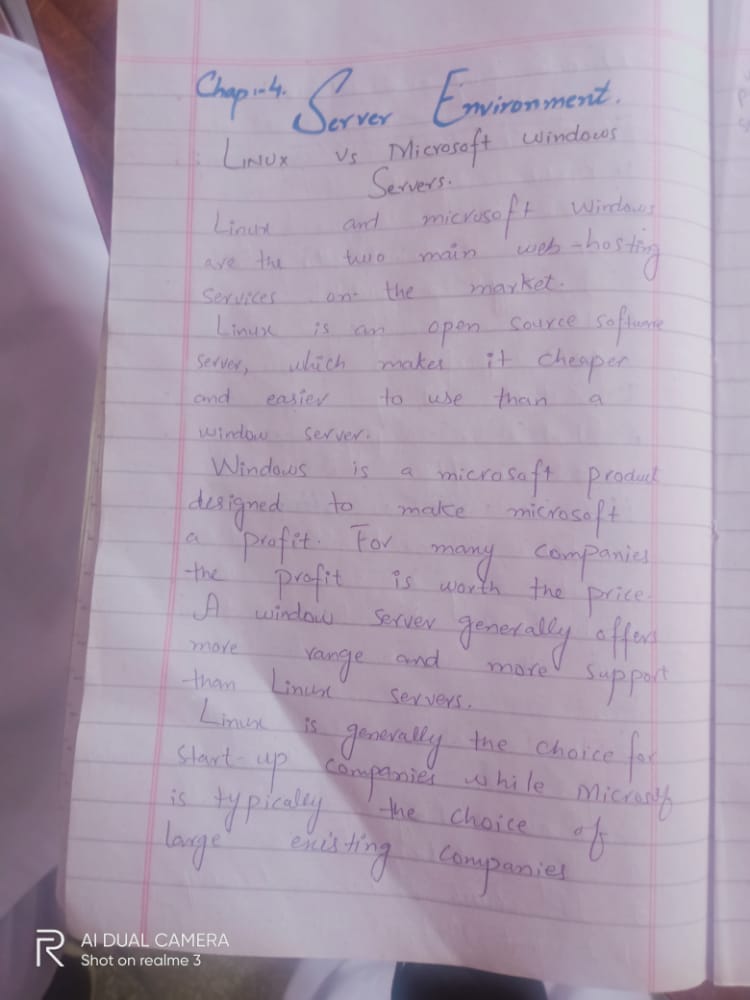 Chap:-4. Server Environment.
Linux vs Microsoft windows
Servers.
Linux and microsoft Windows
are the two main web-hosting
services on the market.
Linux is an open source software
server, which makes it cheaper
and easier to use than a
window server.
Windows is a microsoft product
designed to make microsoft
a profit. For many companies
the profit is worth the price.
A window server generally offers
more range and more support
than Linux servers.
Linux is generally the choice for
start-up companies while Microsoft
is typically the choice of
large existing companies
R AI DUAL CAMERA
Shot on realme 3